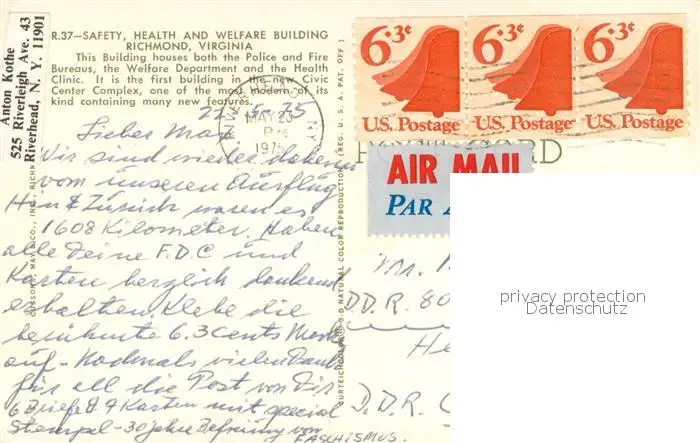 R.37—SAFETY, HEALTH AND WELFARE BUILDING
RICHMOND, VIRGINIA
This Building houses both the Police and Fire
Bureaus, the Welfare Department and the Health
Clinic. It is the first building in the new Civic
Center Complex, one of the most modern of its
kind containing many new features.
Anton Kothe
525 Riverleigh Ave. 43
Riverhead, N. Y. 11901
22-5-75
Lieber Max
Wir sind wieder daheim
vom unseren Ausflug
Hin & Zurück waren es
1608 Kilometer. Haben
alle Deine F.D.C und
Karten herzlich dankend
erhalten. Klebe die
berühmte 6.3 Cents Marke
auf - Nochmals vielen Dank
für all die Post von Dir
6 Briefe & 7 Karten mit special
Stempel - 30 Jahre Befreiung von
FASCHISMUS.
MAY 23
PM
197
6.3¢
U.S. Postage
6.3¢
U.S. Postage
6.3¢
U.S. Postage
AIR MAIL
PAR
CARD
Mr.
D.D.R. 80
He
D.D.R.
NATURAL COLOR REPRODUCTION (REG. U.S.A. PAT. OFF.)
privacy protection
Datenschutz